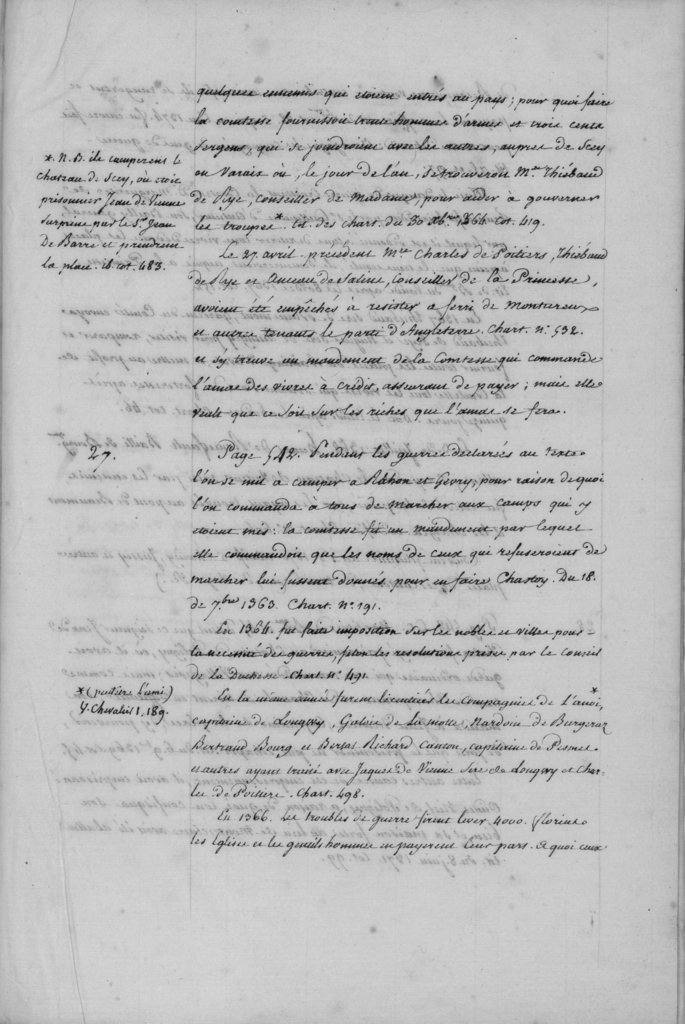 quelques ennemis qui etoient entrés au pays; pour quoi faire
la comtesse fournissoit trente hommes d'armes et trois cents
Sergens, qui se joindroient avec les autres, aupres de Scey
ou Varaix où, le jour de l'an, se trouveront Mre Thiébaud
de Rye, conseiller de Madame, pour aider à gouverner
les troupes*. lit. des chart. du 30 xbre 1364 cot. 419.
* N.B. ils camperent le
Chateau de Scey, où etoit
prisonnier Jean de Vienne
surprins par le Sr. Jean
De Barre et prendrent
la place. ib. cot. 483.
Le 27 avril precedent Mre Charles de Poitiers, Thiébaud
de Rye et Anceau de Salins, Conseiller de la Princesse,
avoient été empêchés à resister a ferri de Montureux
et autres tenants le parti d'Angleterre. Chart. n. 532.
et s'y treuve un mandement de la Comtesse qui commande
l'amas des vivres à credit, asseurant de payer; mais elle
veult que ce soit sur les riches que l'amas se fera.
27.
Page 542. Pendant les guerres declarées au texte
l'on se mit à camper a Rahon et Gevry, pour raison de quoi
l'on commanda à tous de marcher aux camps qui y
etoient mis: la comtesse fit un mandement par lequel
elle commandoit que les noms de ceux qui refuseroient de
marcher lui fussent donnés pour en faire Chastoy. Du 18.
de 7bre 1363. Chart. No. 191.
En 1364. fut faite imposition sur les nobles et villes pour
la necessité des guerres, selon les resolutions prises par le Conseil
de la Duchesse. Chart. n. 491
* (peutêtre l'ami)
V. Chevalier 1, 189.
En la même année furent licentiés les Compagnies de L'anvi*
capitaine de Longwy, Galois de La motte, Nardoin de Burgeraz
Bertrand Bourg et Richard Canton, capitaine de Pesmes
et autres ayant traité avec Jaques de Vienne Sire de Longwy et Char-
les de Poitiers. Chart. 498.
En 1366. Les troubles de guerre firent lever 4000. florins
les Eglises et les gentilshommes en payerent leur part. A quoi ceux